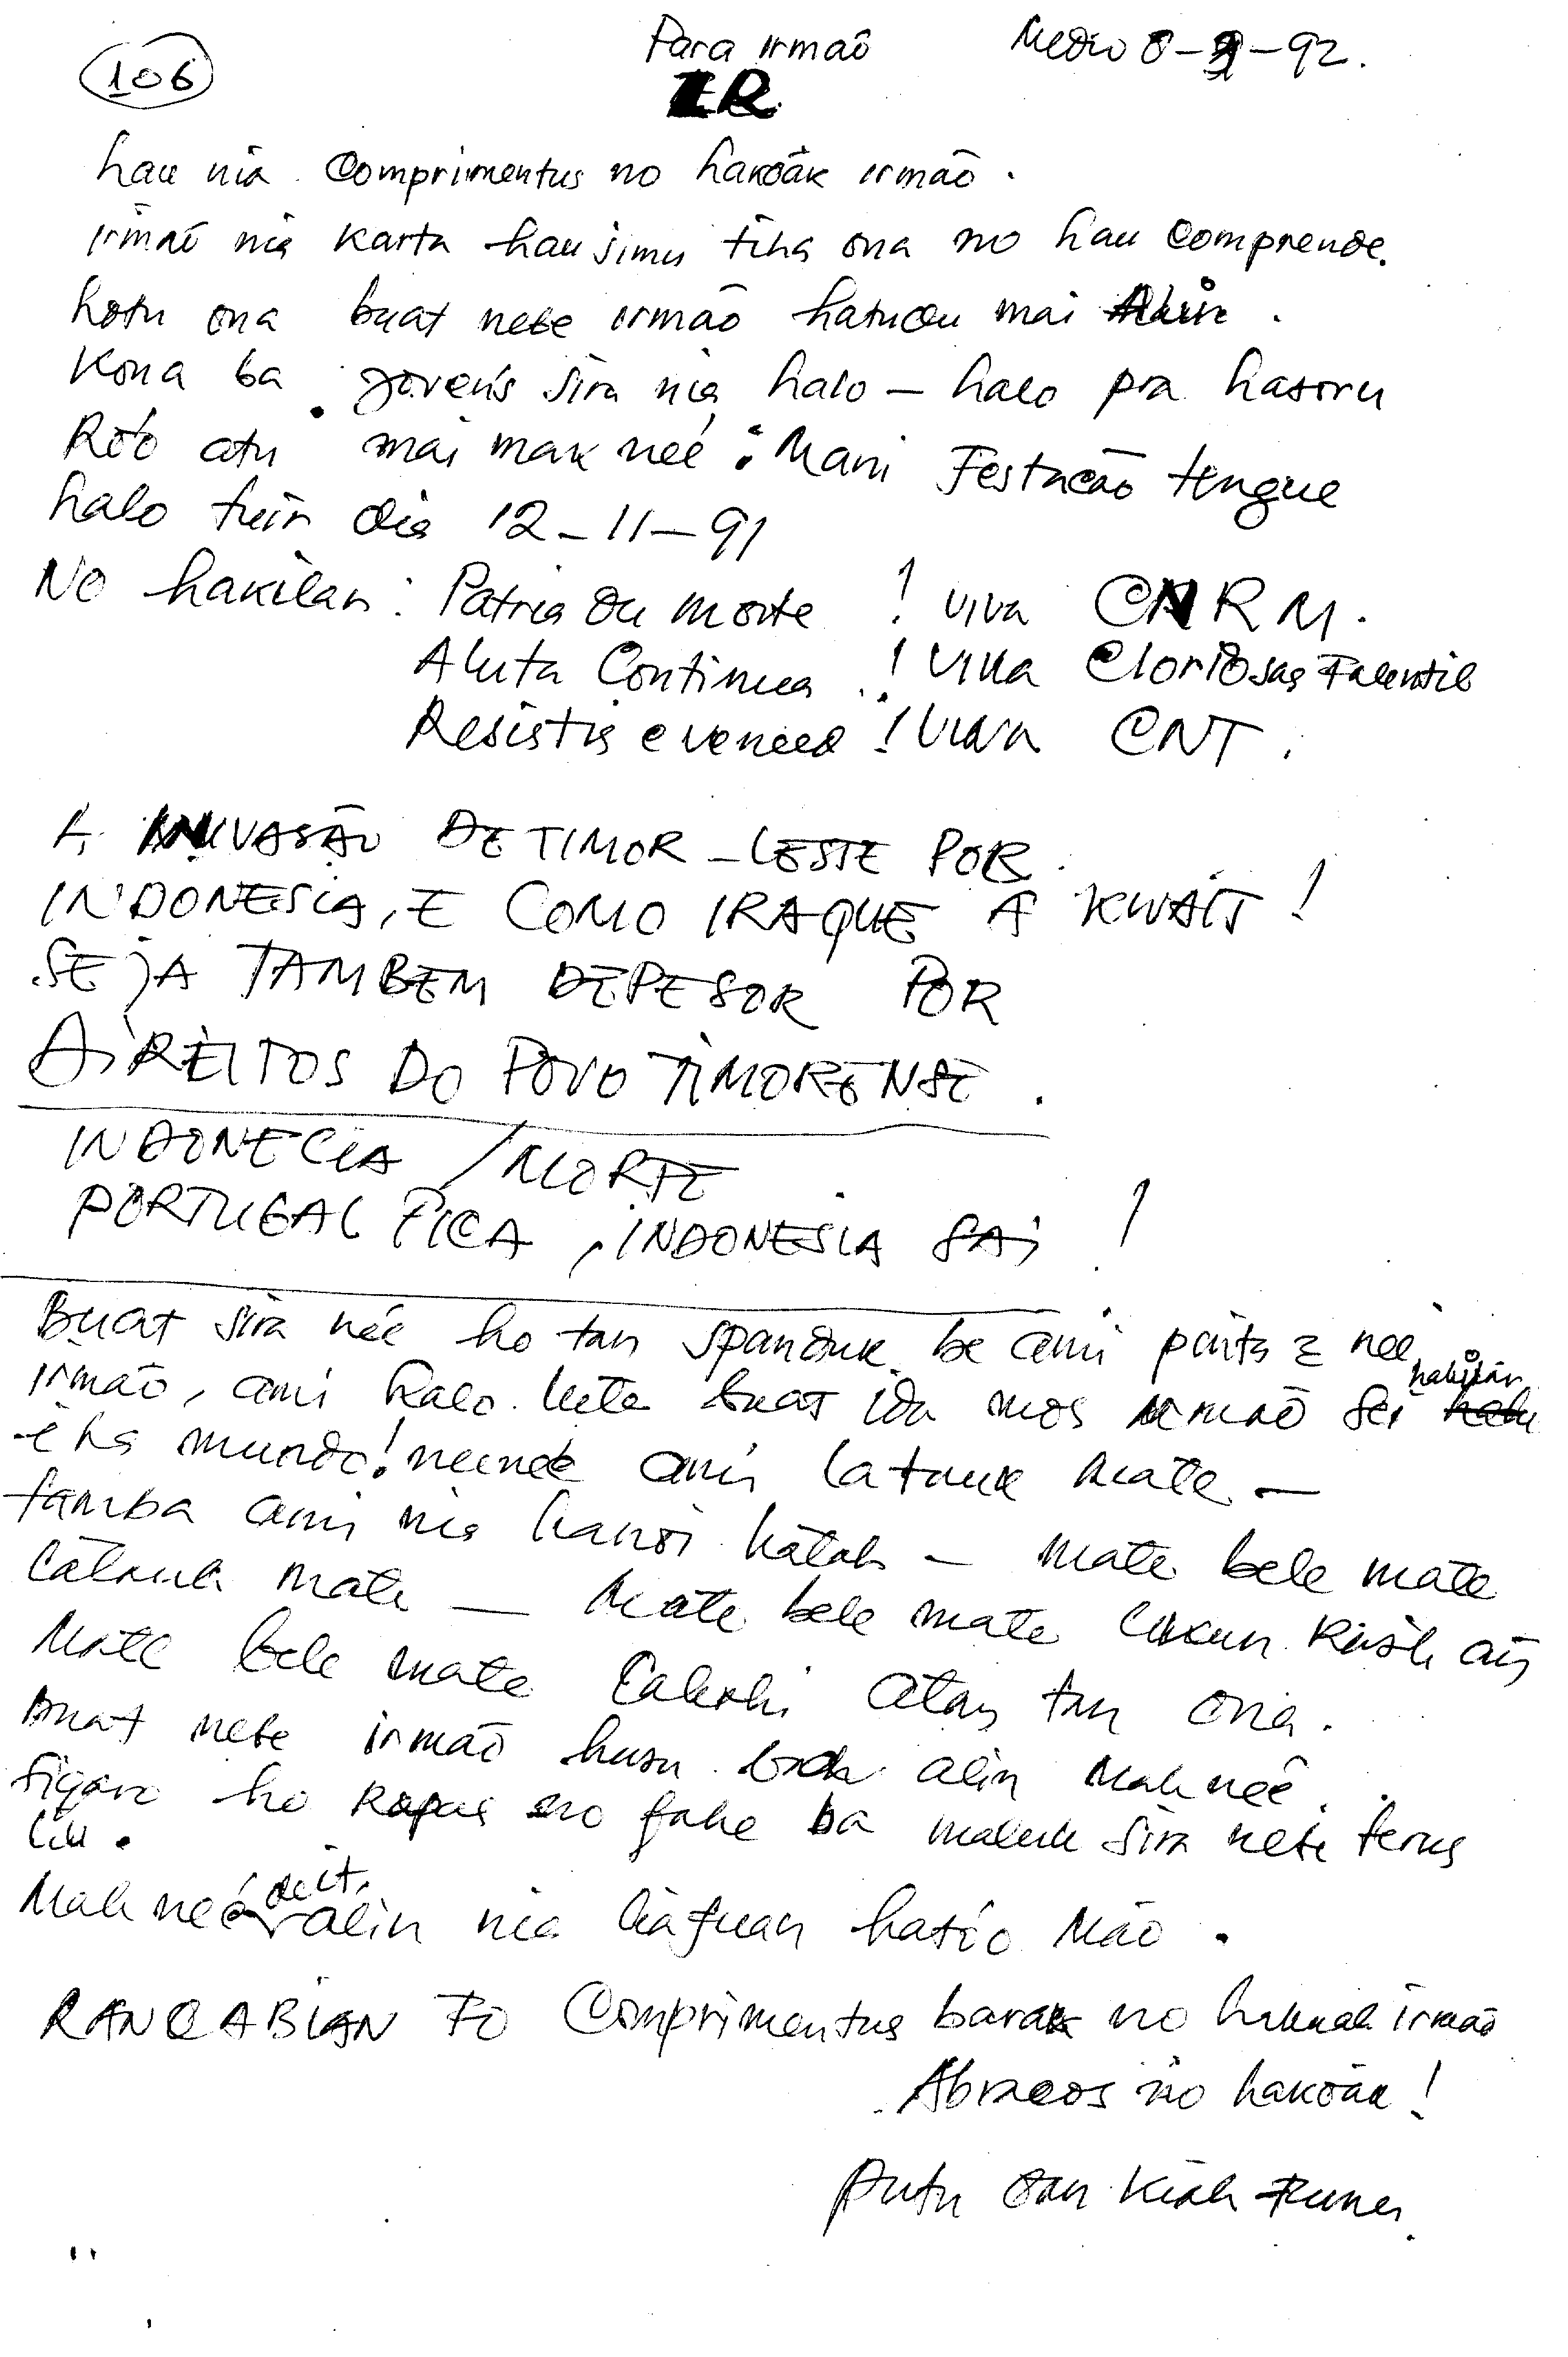 106
Para irmaõ
Medio 8-2-92.
ZR
hau nia comprimentus no hakoãk irmão.
irmaõ nia karta hau simu tiha ona no hau comprende.
hotu ona buat nebe irmão hatudu mai Alin.
Kona ba jovens sira nia halo - halo pra hasoru
Róo atu mai mak neé : Mani Festacão tengue
halo tuir dia 12-11-91
No hakilar : Patria ou morte ! viva CNRM.
A luta Continua ! Viva Gloriosas Falentil
Resistir e vencer ! Viva CNT.
A. INVASÃO DE TIMOR-LESTE POR
INDONESIA, E COMO IRAQUE A KWAIT !
SEJA TAMBEM DEPESOR POR
DIREITOS DO POVO TIMORENSE.
INDONECIA / MORTE
PORTUGAL FICA, INDONESIA SAI !
Buat sira neé ho tan spanduk be ami pinta neé
irmão, ami halo buat ida mos irmaõ sei hakilar
iha mundo! neineé ami la tauk mate -
tamba ami nia kanoi - mate bele mate
mate - mate bele mate
Mate bele mate atan tan ona.
buat nebe irmão husu alin mak neé.
Figaro ho Rapas no fahe ba maluk sira nebe terus
liu.
Mak neé deit, alin nia liafuan hatóo Mão.
RANCABIAN FO Comprimentus barak no hakuak irmaõ
Abracos no hakoãk !
Putu